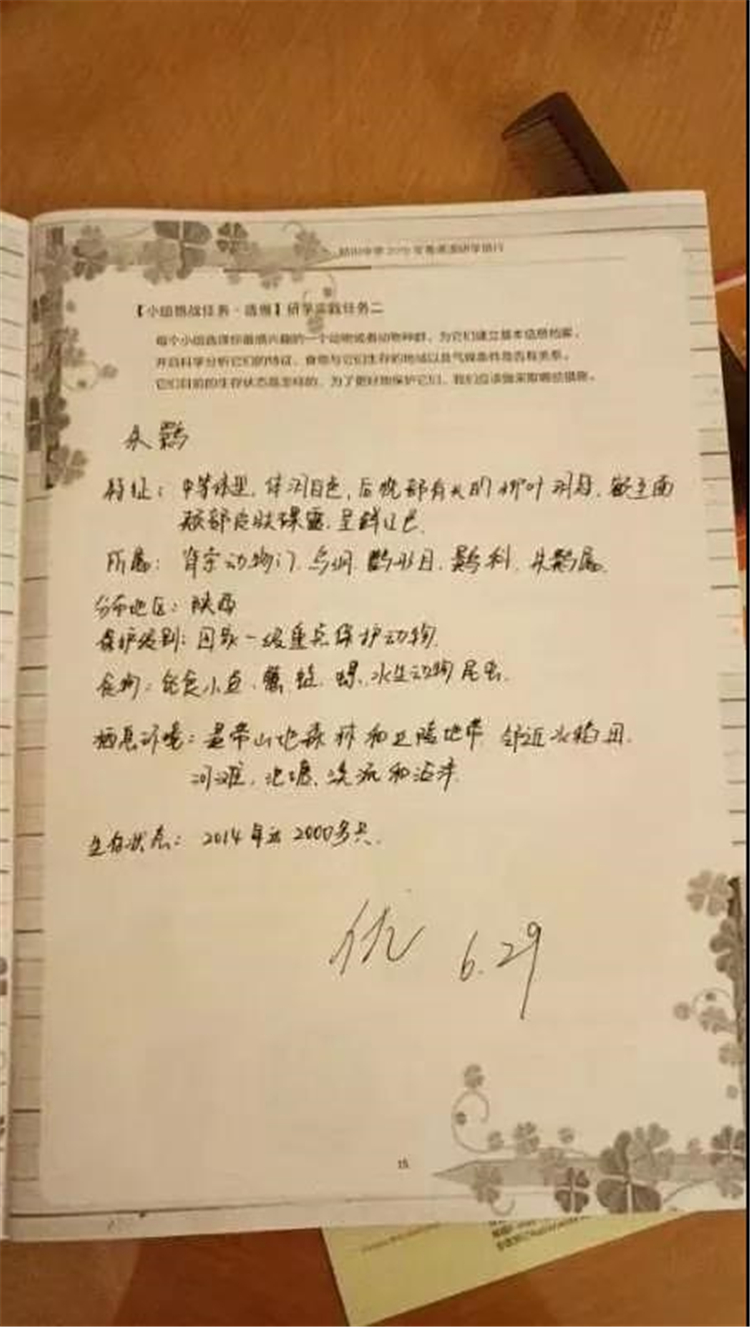 【小组挑战任务·选做】研学实践任务二
每个小组选择你最感兴趣的一个动物或者动物种群，为它们建立基本信息档案，
并且科学分析它们的特征、食物与它们生存的地域以及气候条件是否有关系，
它们目前的生存状态是怎样的，为了更好地保护它们，我们应该做采取哪些措施。
朱鹮
特征：中等体型，体羽白色，后枕部有长的柳叶羽冠，
颊部皮肤裸露，呈鲜红色
所属：脊索动物门、鸟纲、鹳形目、鹮科、朱鹮属
分布地区：陕西
保护级别：国家一级重点保护动物
食物：吃食小鱼、蟹、蛙、螺、水生动物昆虫
栖息环境：温带山地森林和丘陵地带 邻近水稻田、
河滩、池塘、溪流和沼泽
生存状态：2014年达2000多只
优 6.29
15